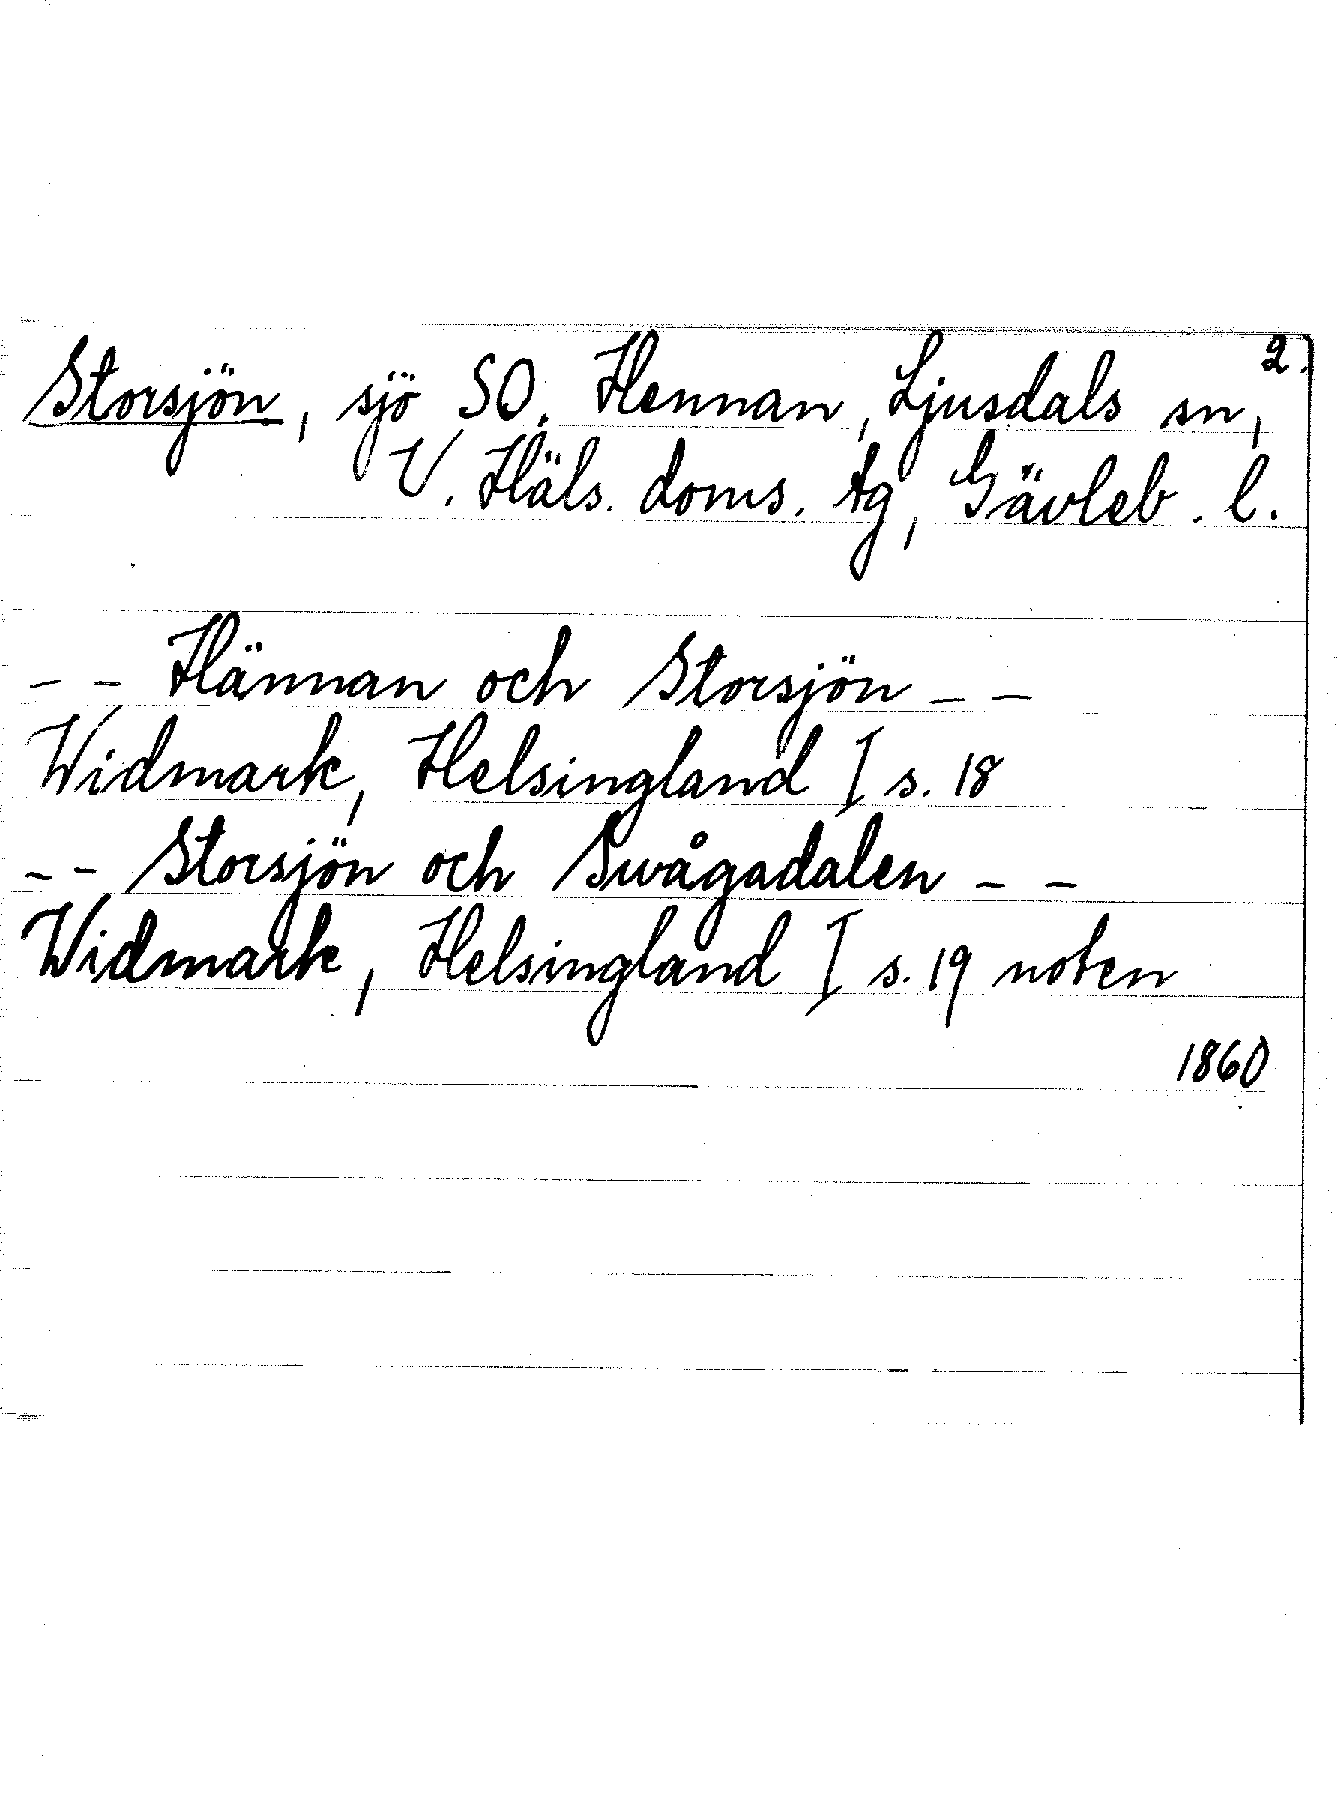 2.
Storsjön, sjö SO. Hennan, Ljusdals sn,
V. Häls. doms. tg, Gävleb. l.
-- Hännan och Storsjön --
Widmark, Helsingland I s. 18
-- Storsjön och Swågadalen --
Widmark, Helsingland I s. 19 noten
1860